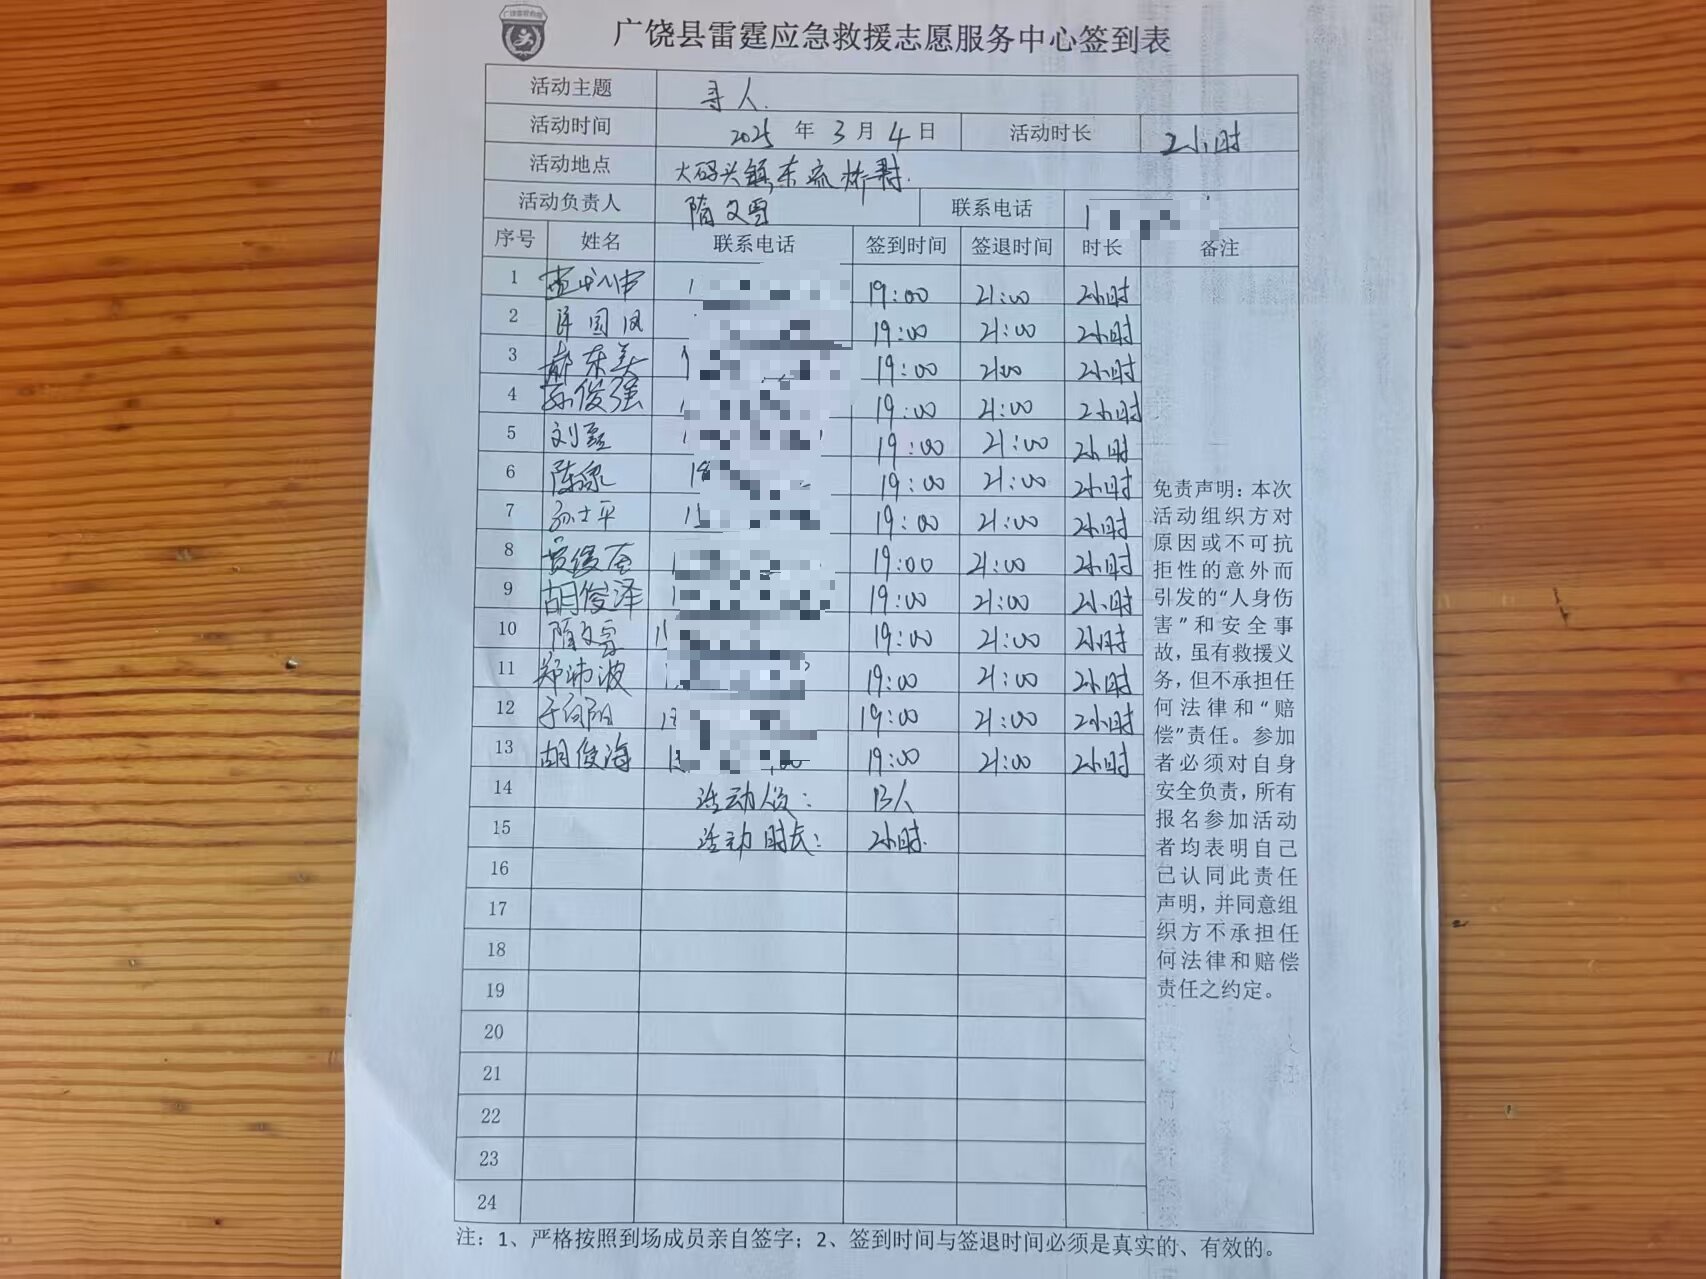 广饶县雷霆应急救援志愿服务中心签到表
活动主题 寻人.
活动时间 2025 年 3 月 4 日 活动时长 2小时
活动地点 大码头镇东
活动负责人 隋文雪 联系电话 1
序号 姓名 联系电话 签到时间 签退时间 时长 备注
1 19:00 21:00 2小时
2 国凤 19:00 21:00 2小时
3 郝东美 19:00 21:00 2小时
4 孙俊强 19:00 21:00 2小时
5 刘磊 19:00 21:00 2小时
6 陈 18 19:00 21:00 2小时
7 孙士平 15 19:00 21:00 2小时
8 19:00 21:00 2小时
9 胡俊泽 19:00 21:00 2小时
10 隋文雪 19:00 21:00 2小时
11 郑沛波 19:00 21:00 2小时
12 于向阳 19:00 21:00 2小时
13 胡俊海 19:00 21:00 2小时
14 活动人员: 13人
15 活动时长: 2小时.
16
17
18
19
20
21
22
23
24
免责声明：本次
活动组织方对
原因或不可抗
拒性的意外而
引发的“人身伤
害”和安全事
故，虽有救援义
务，但不承担任
何法律和“赔
偿”责任。参加
者必须对自身
安全负责，所有
报名参加活动
者均表明自己
己认同此责任
声明，并同意组
织方不承担任
何法律和赔偿
责任之约定。
注：1、严格按照到场成员亲自签字；2、签到时间与签退时间必须是真实的、有效的。